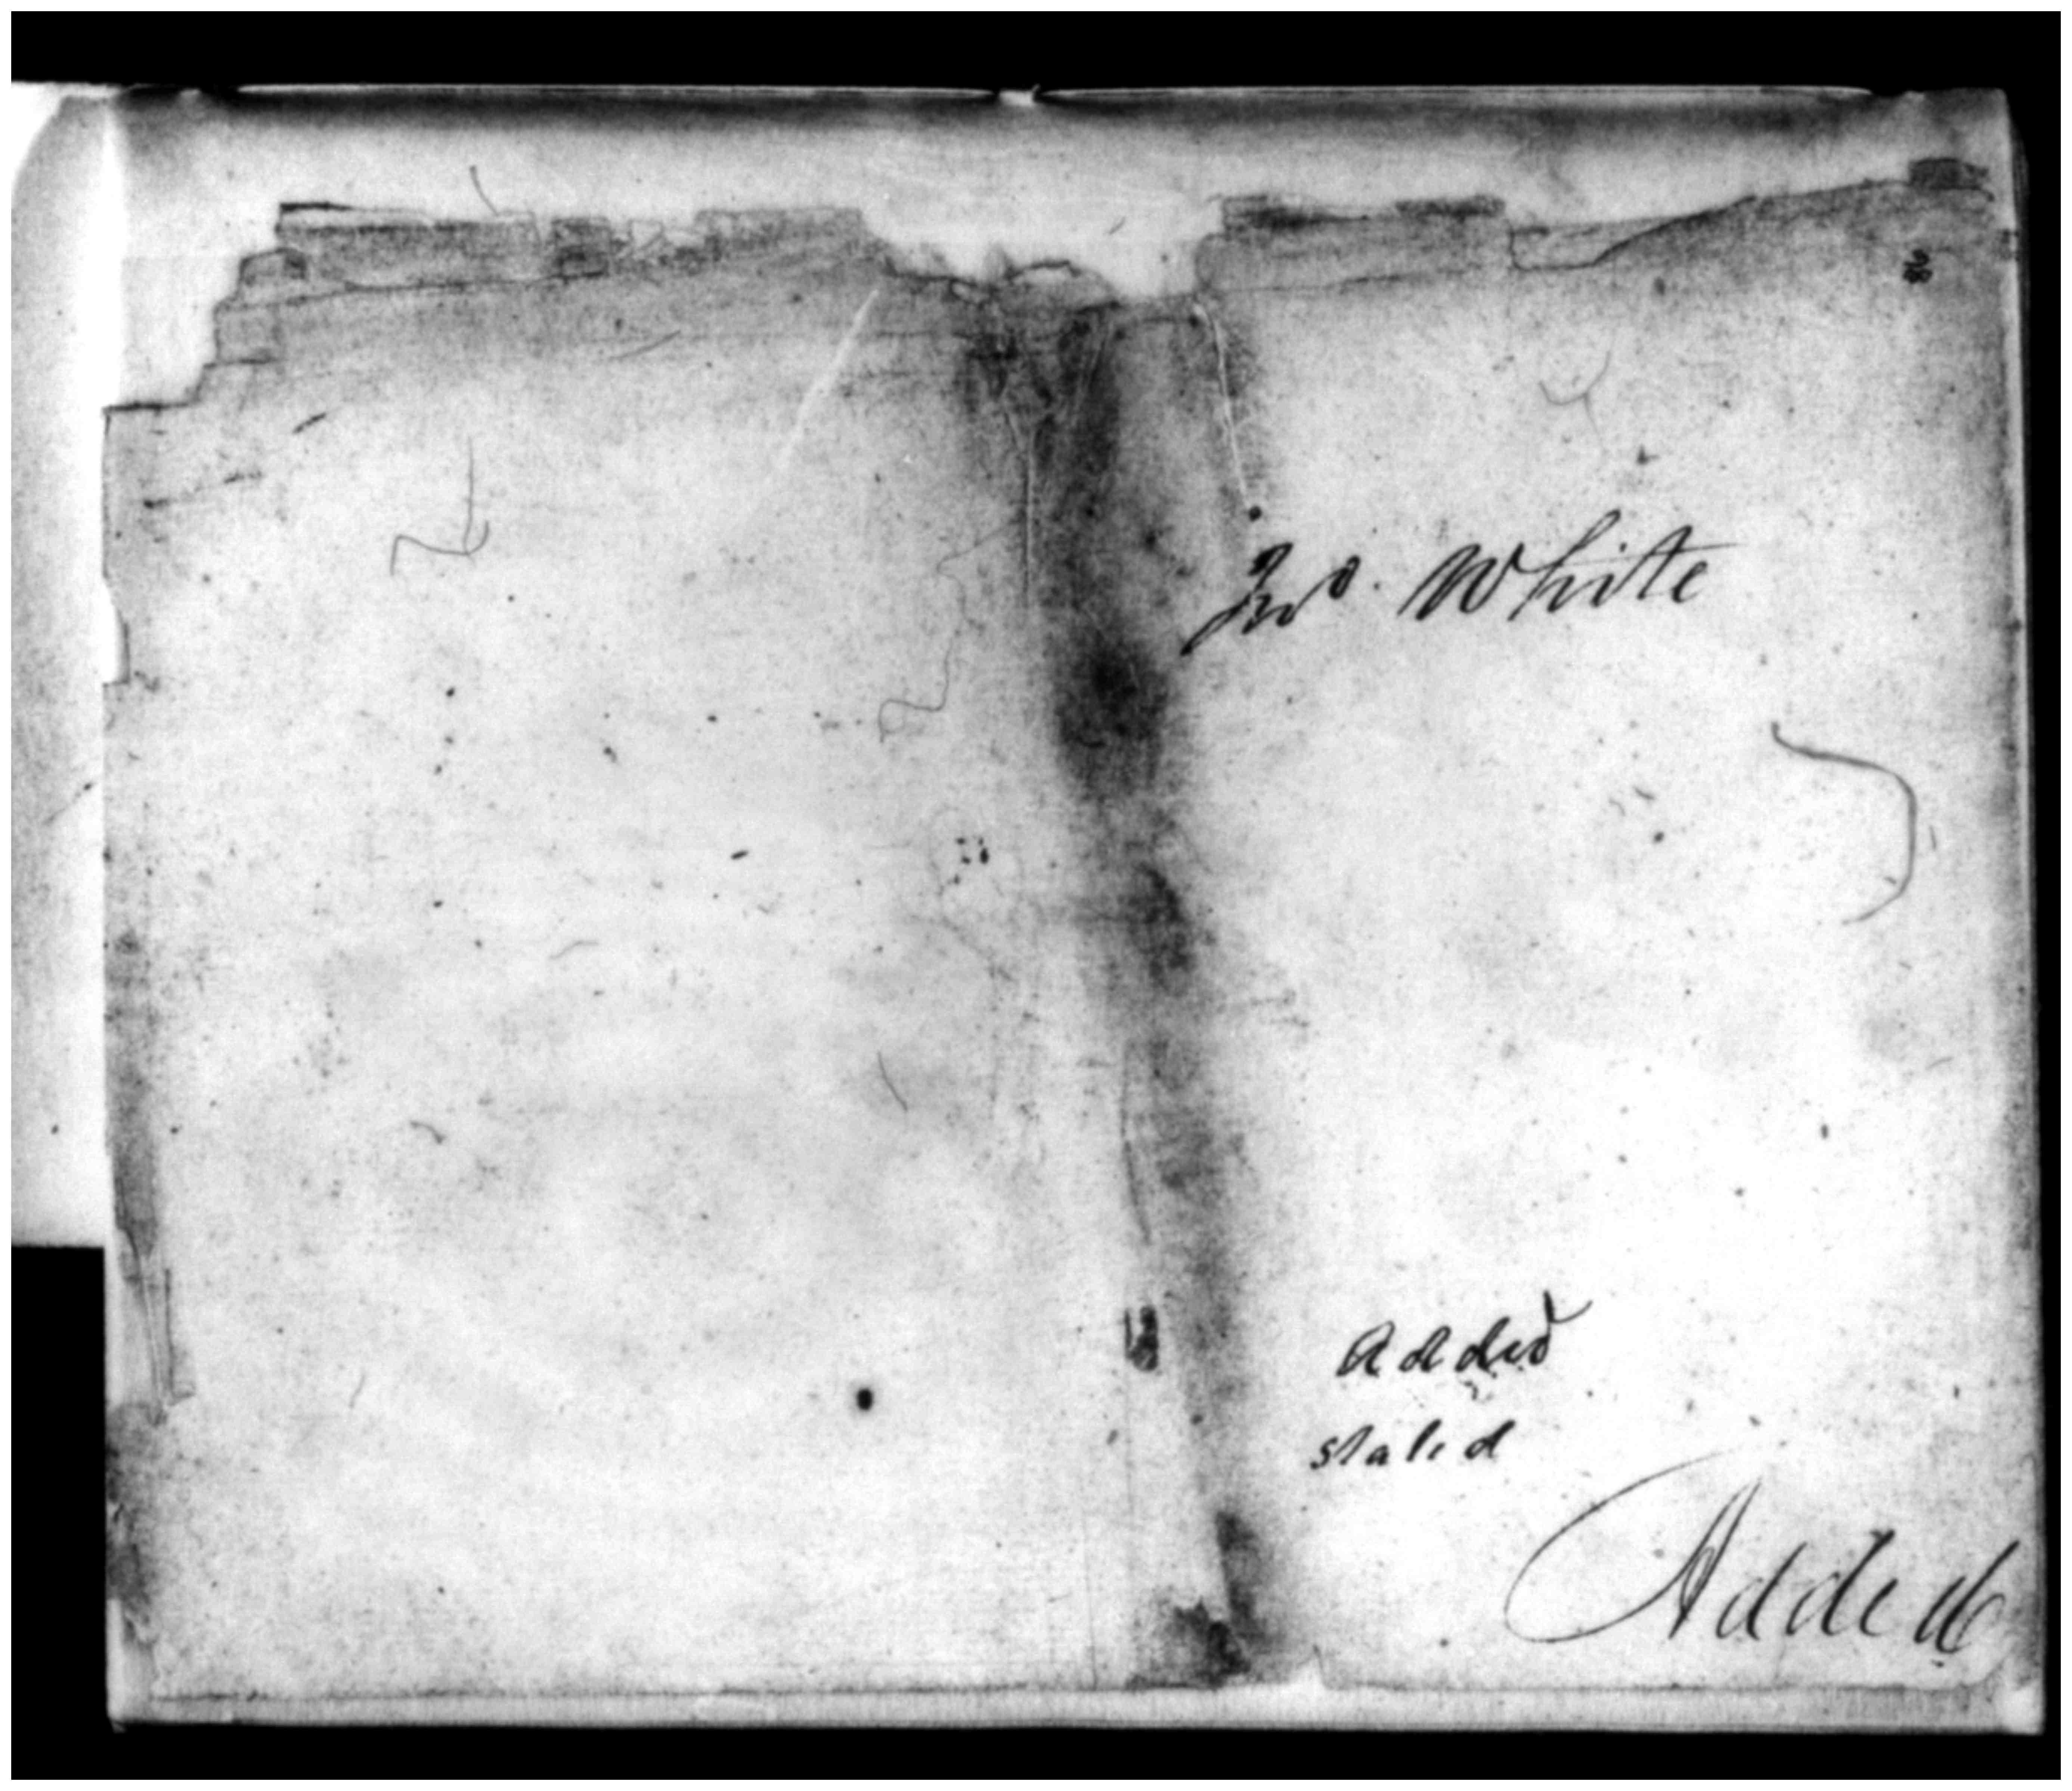 Jno. White
Added
stated
Added